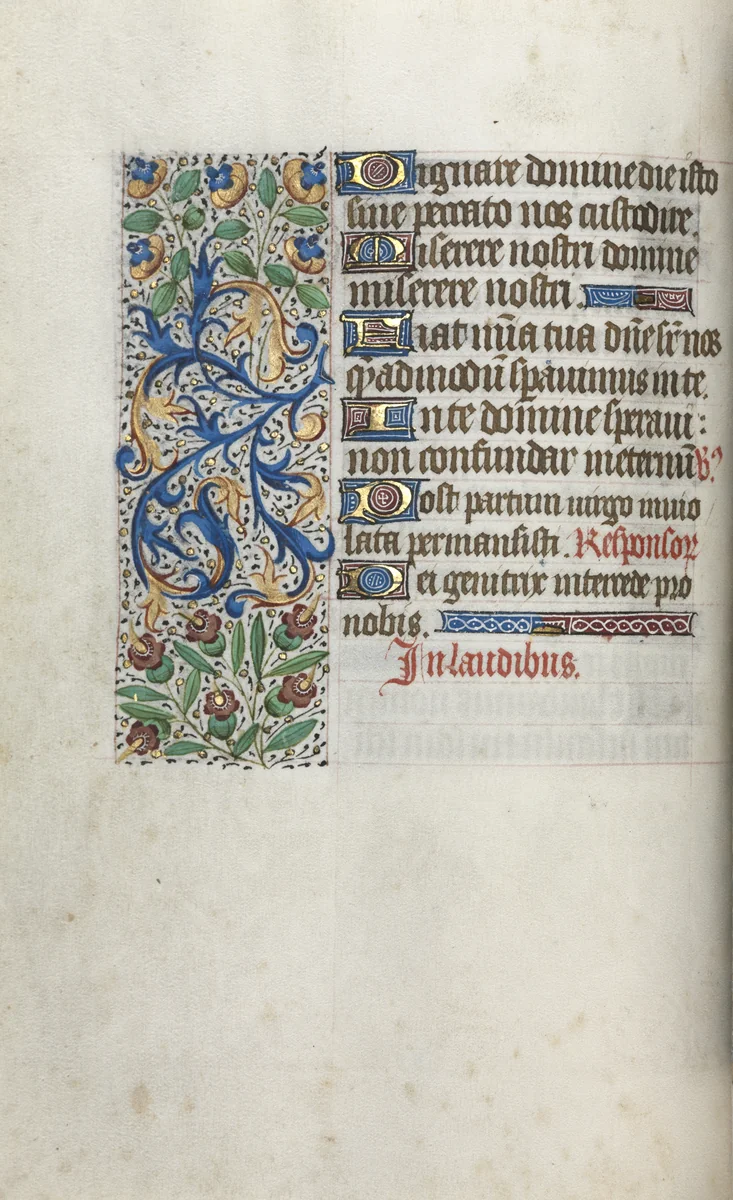 Dignare domine die isto
sine peccato nos custodire.
Miserere nostri domine
miserere nostri.
Fiat mīa tua dñe sr̄ nos
q̄ admodū sperauimus in te.
In te domine speraui:
non confundar in eternū
Post partum uirgo inuio
lata permansisti. Responsor
Dei genitrix intercede pro
nobis.
In laudibus.